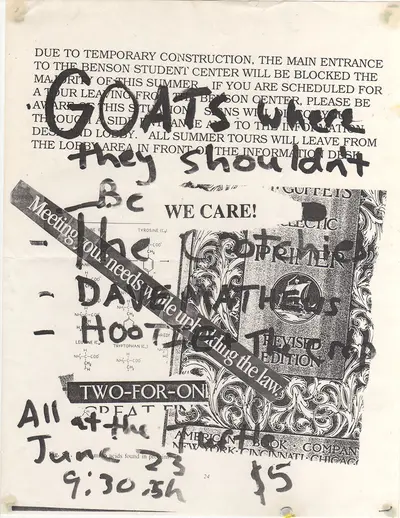 DUE TO TEMPORARY CONSTRUCTION, THE MAIN ENTRANCE
TO THE BENSON STUDENT CENTER WILL BE BLOCKED THE
MAJORITY OF THIS SUMMER. IF YOU ARE SCHEDULED FOR
A TOUR LEAVING FROM THE BENSON CENTER, PLEASE BE
AWARE THIS
THROUGH SIDE TO THE INFORMATION
DESK LOBBY. ALL SUMMER TOURS WILL LEAVE FROM
THE LOBBY AREA IN FRONT OF THE INFORMATION DESK
GOATS where
they shouldn't
Be
WE CARE!
McGUFFEY'S
ECLECTIC
PRIMER
REVISED
EDITION
Meeting your needs while upholding the laws
- The Crotchies
- DAVE MATHEWS
- HOOTIE
TWO-FOR-ON
GREAT
AMERICAN BOOK COMPANY
NEW YORK CINCINNATI CHICAGO
acids found in
24
All at the
June 23
9:30.sh
$5